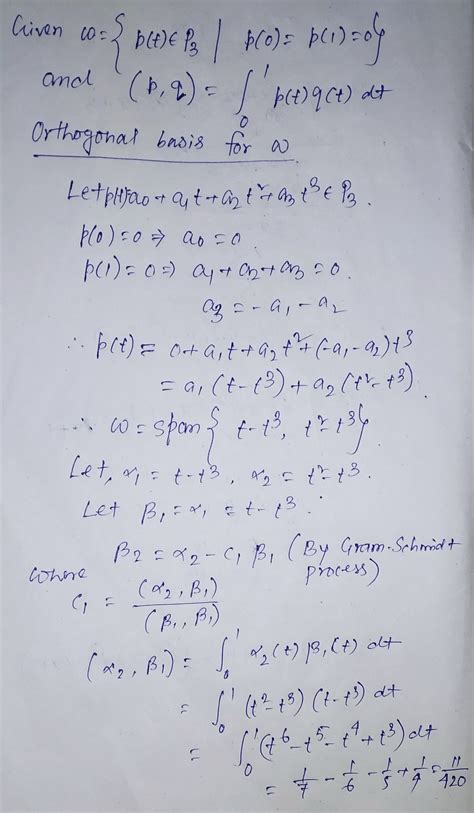 Given ω = { p(t) ∈ P₃ | p(0) = p(1) = 0 }
and (p, q) = ∫₀¹ p(t) q(t) dt
Orthogonal basis for ω
Let p(t) = a₀ + a₁t + a₂t² + a₃t³ ∈ P₃.
p(0) = 0 ⇒ a₀ = 0.
p(1) = 0 ⇒ a₁ + a₂ + a₃ = 0.
a₃ = -a₁ - a₂
∴ p(t) = 0 + a₁t + a₂t² + (-a₁ - a₂)t³
= a₁(t - t³) + a₂(t² - t³).
∴ ω = span { t - t³, t² - t³ }
Let, α₁ = t - t³, α₂ = t² - t³.
Let β₁ = α₁ = t - t³.
β₂ = α₂ - C₁ β₁ (By Gram-Schmidt process)
where
C₁ = (α₂, β₁) / (β₁, β₁)
(α₂, β₁) = ∫₀¹ α₂(t) β₁(t) dt
= ∫₀¹ (t² - t³)(t - t³) dt
= ∫₀¹ (t⁶ - t⁵ - t⁴ + t³) dt
= 1/7 - 1/6 - 1/5 + 1/4 = 11/420